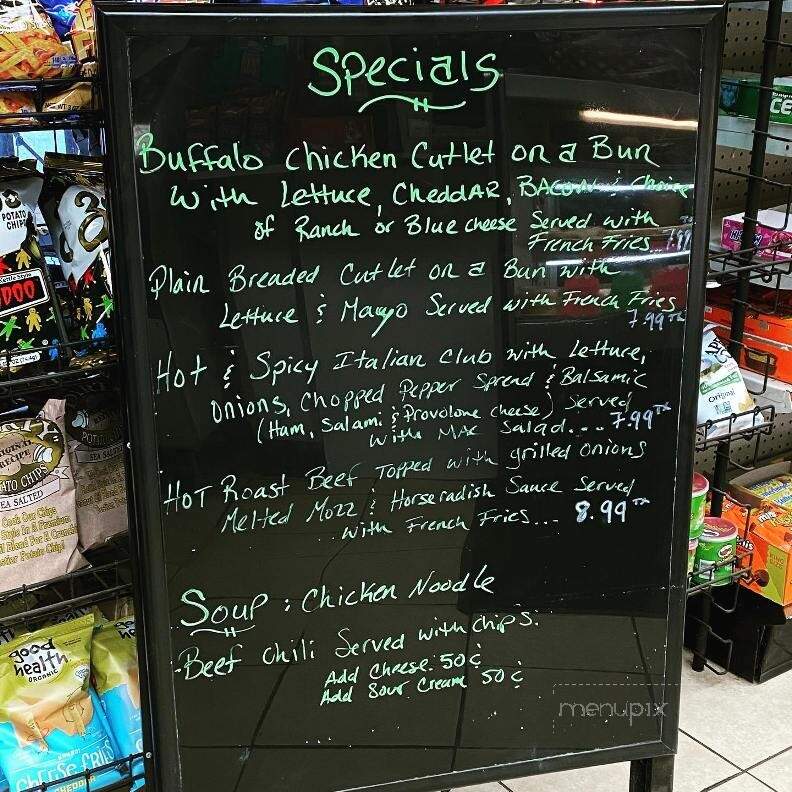 Specials
Buffalo Chicken Cutlet on a Bun
With Lettuce, Cheddar, Bacon & Choice
of Ranch or Blue cheese Served with
French Fries 7.99
Plain Breaded Cutlet on a Bun with
Lettuce & Mayo Served with French Fries
7.99 TX
Hot & Spicy Italian Club with Lettuce,
Onions, Chopped Pepper Spread & Balsamic
(Ham, Salami & Provolone cheese) Served
with Mac Salad... 7.99 TX
Hot Roast Beef Topped with grilled onions
Melted Mozz & Horseradish Sauce Served
with French Fries... 8.99 TX
Soup : Chicken Noodle
-Beef Chili Served with Chips.
Add Cheese 50¢
Add Sour Cream 50¢
menupix
POTATO
CHIPS
DOO
POTATO CHIPS
SEA SALTED
good
health
ORGANIC
CHEDDAR
Original